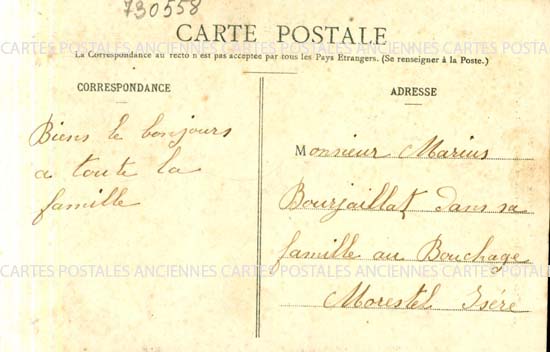 730558
CARTE POSTALE
CARTES POSTALES ANCIENNES CARTES POSTALES ANCIENNES CARTES POSTALES ANCIENNES
La Correspondance au recto n'est pas acceptée par tous les Pays Etrangers. (Se renseigner à la Poste.)
CORRESPONDANCE
Biens le bonjours
a toute la
famille
ADRESSE
Monsieur Marius
Bourjaillat dans sa
famille au Bouchage
Morestel Isére
CARTES POSTALES ANCIENNES CARTES POSTALES ANCIENNES CARTES POSTALES ANCIENNES